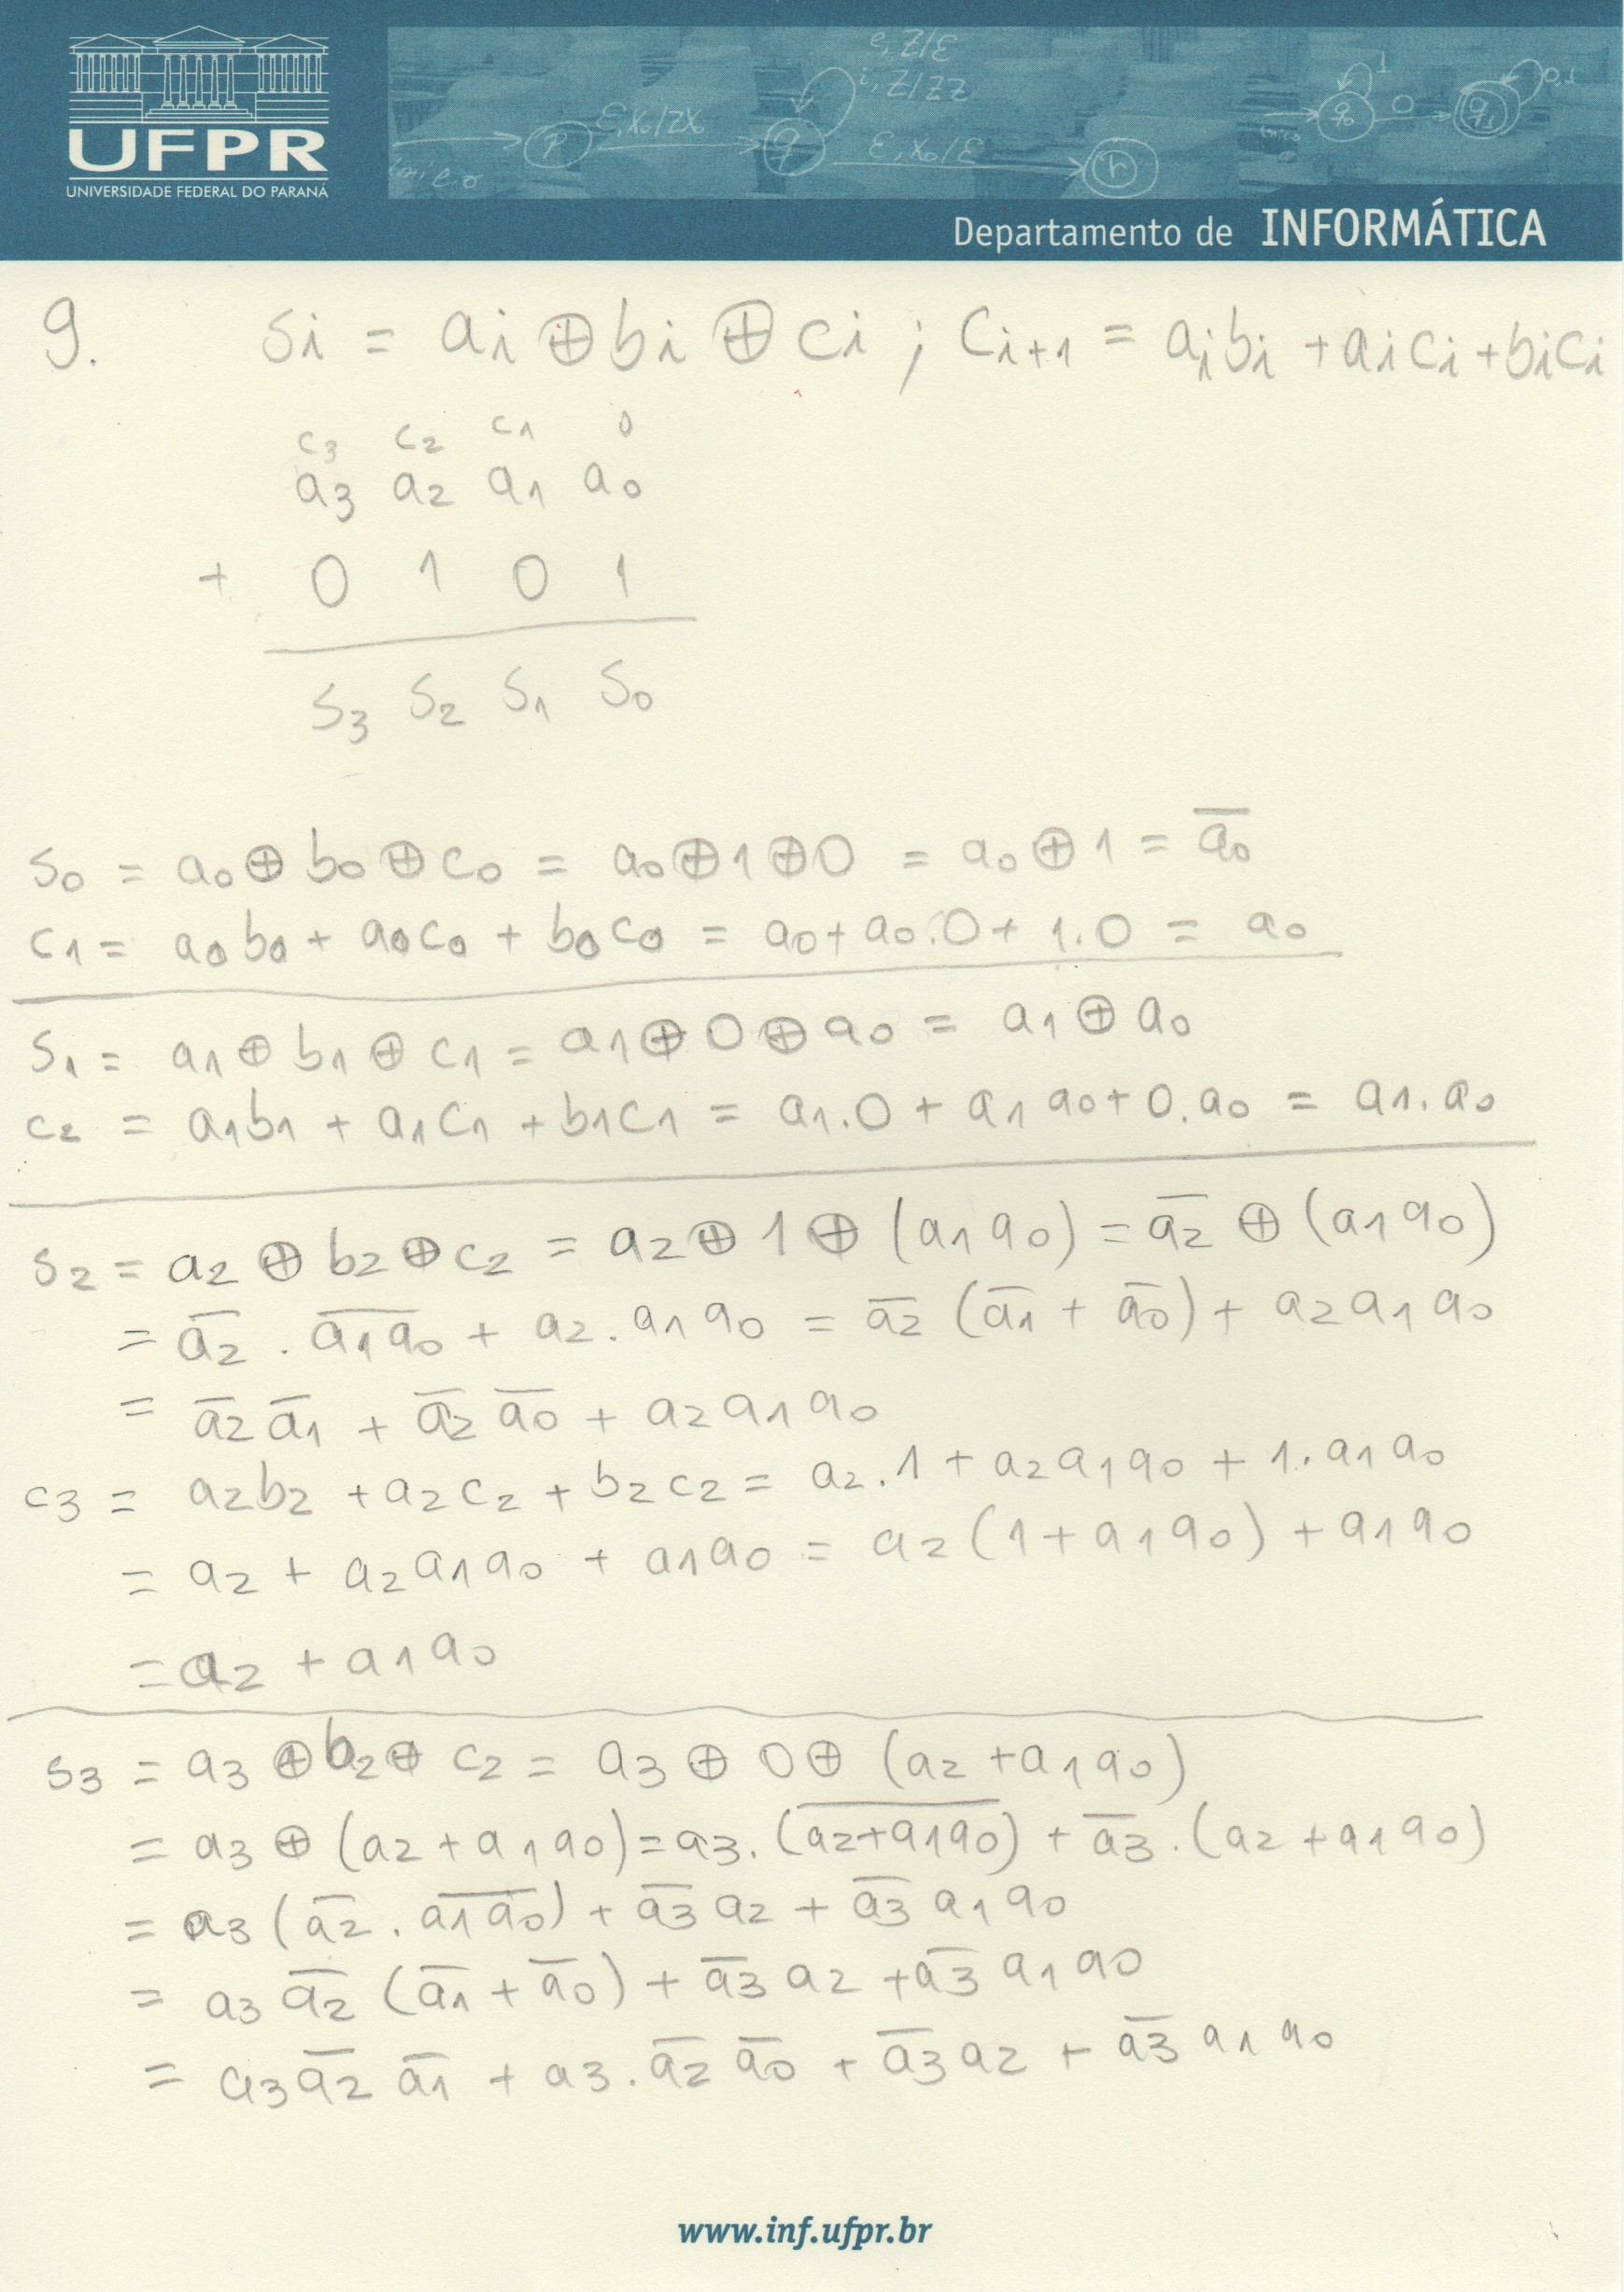 UFPR
UNIVERSIDADE FEDERAL DO PARANÁ
e, Z/ε
i, Z/ZZ
p ε, X₀/ZX₀ q ε, X₀/ε r
q₀ 1 0 q₁ 0,1
Departamento de INFORMÁTICA
9. si = ai ⊕ bi ⊕ ci ; ci+1 = aibi + aici + bici
c3 c2 c1 0
a3 a2 a1 a0
+ 0 1 0 1
s3 s2 s1 s0
s0 = a0 ⊕ b0 ⊕ c0 = a0 ⊕ 1 ⊕ 0 = a0 ⊕ 1 = a̅0̅
c1 = a0b0 + a0c0 + b0c0 = a0 + a0.0 + 1.0 = a0
s1 = a1 ⊕ b1 ⊕ c1 = a1 ⊕ 0 ⊕ a0 = a1 ⊕ a0
c2 = a1b1 + a1c1 + b1c1 = a1.0 + a1a0 + 0.a0 = a1.a0
s2 = a2 ⊕ b2 ⊕ c2 = a2 ⊕ 1 ⊕ (a1a0) = a̅2̅ ⊕ (a1a0)
= a̅2̅ . a̅1̅a̅0̅ + a2.a1a0 = a̅2̅ (a̅1̅ + a̅0̅) + a2a1a0
= a̅2̅ a̅1̅ + a̅2̅ a̅0̅ + a2a1a0
c3 = a2b2 + a2c2 + b2c2 = a2.1 + a2a1a0 + 1.a1a0
= a2 + a2a1a0 + a1a0 = a2(1 + a1a0) + a1a0
= a2 + a1a0
s3 = a3 ⊕ b2 ⊕ c2 = a3 ⊕ 0 ⊕ (a2 + a1a0)
= a3 ⊕ (a2 + a1a0) = a3.(a̅2̅+̅a̅1̅a̅0̅) + a̅3̅.(a2 + a1a0)
= a3(a̅2̅ . a̅1̅a̅0̅) + a̅3̅ a2 + a̅3̅ a1a0
= a3 a̅2̅ (a̅1̅ + a̅0̅) + a̅3̅ a2 + a̅3̅ a1a0
= a3 a̅2̅ a̅1̅ + a3.a̅2̅ a̅0̅ + a̅3̅ a2 + a̅3̅ a1a0
www.inf.ufpr.br